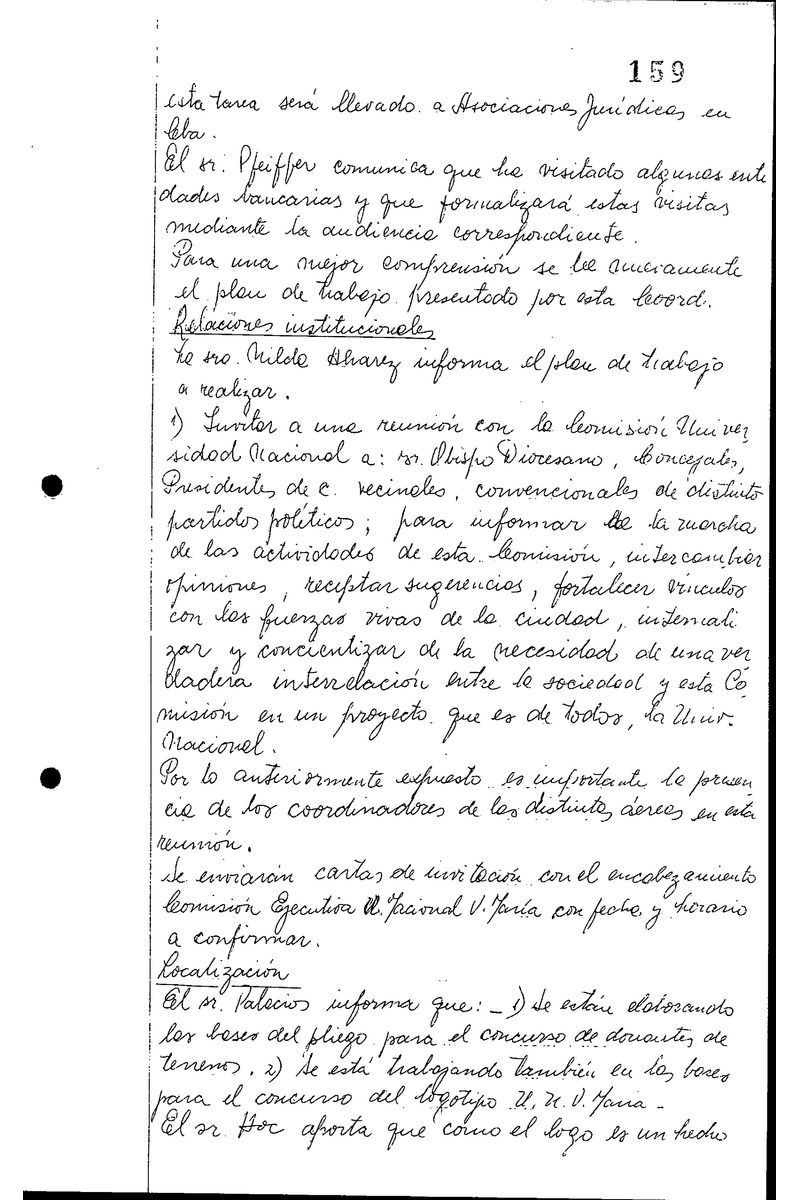 159
esta tarea será llevado a Asociaciones Jurídicas en
Cba.
El sr. Pfeiffer comunica que ha visitado algunas enti
dades bancarias y que formalizará estas visitas
mediante la audiencia correspondiente.
Para una mejor comprensión se lee nuevamente
el plan de trabajo presentado por esta Coord.
Relaciones institucionales
La sra. Nilda Alvarez informa el plan de trabajo
a realizar.
1) Invitar a una reunión con la Comisión Univer
sidad Nacional a: sr. Obispo Diocesano, Concejales,
Presidentes de C. vecinales, convencionales de distinto
partidos políticos; para informar de la marcha
de las actividades de esta Comisión, intercambiar
opiniones, receptar sugerencias, fortalecer vínculos
con las fuerzas vivas de la ciudad, internali
zar y concientizar de la necesidad de una ver
dadera interrelación entre la sociedad y esta Co
misión en un proyecto que es de todos, la Univ.
Nacional.
Por lo anteriormente expuesto es importante la presen
cia de los coordinadores de las distintas áereas en esta
reunión.
Se enviarán cartas de invitación con el encabezamiento
Comisión Ejecutiva U. Nacional V. María con fecha y horario
a confirmar.
Localización
El sr. Palacios informa que: _ 1) Se están elaborando
las bases del pliego para el concurso de donantes de
terrenos. 2) Se está trabajando también en las bases
para el concurso del logotipo U. N. V. Maria -
El sr. Hoc aporta que como el logo es un hecho